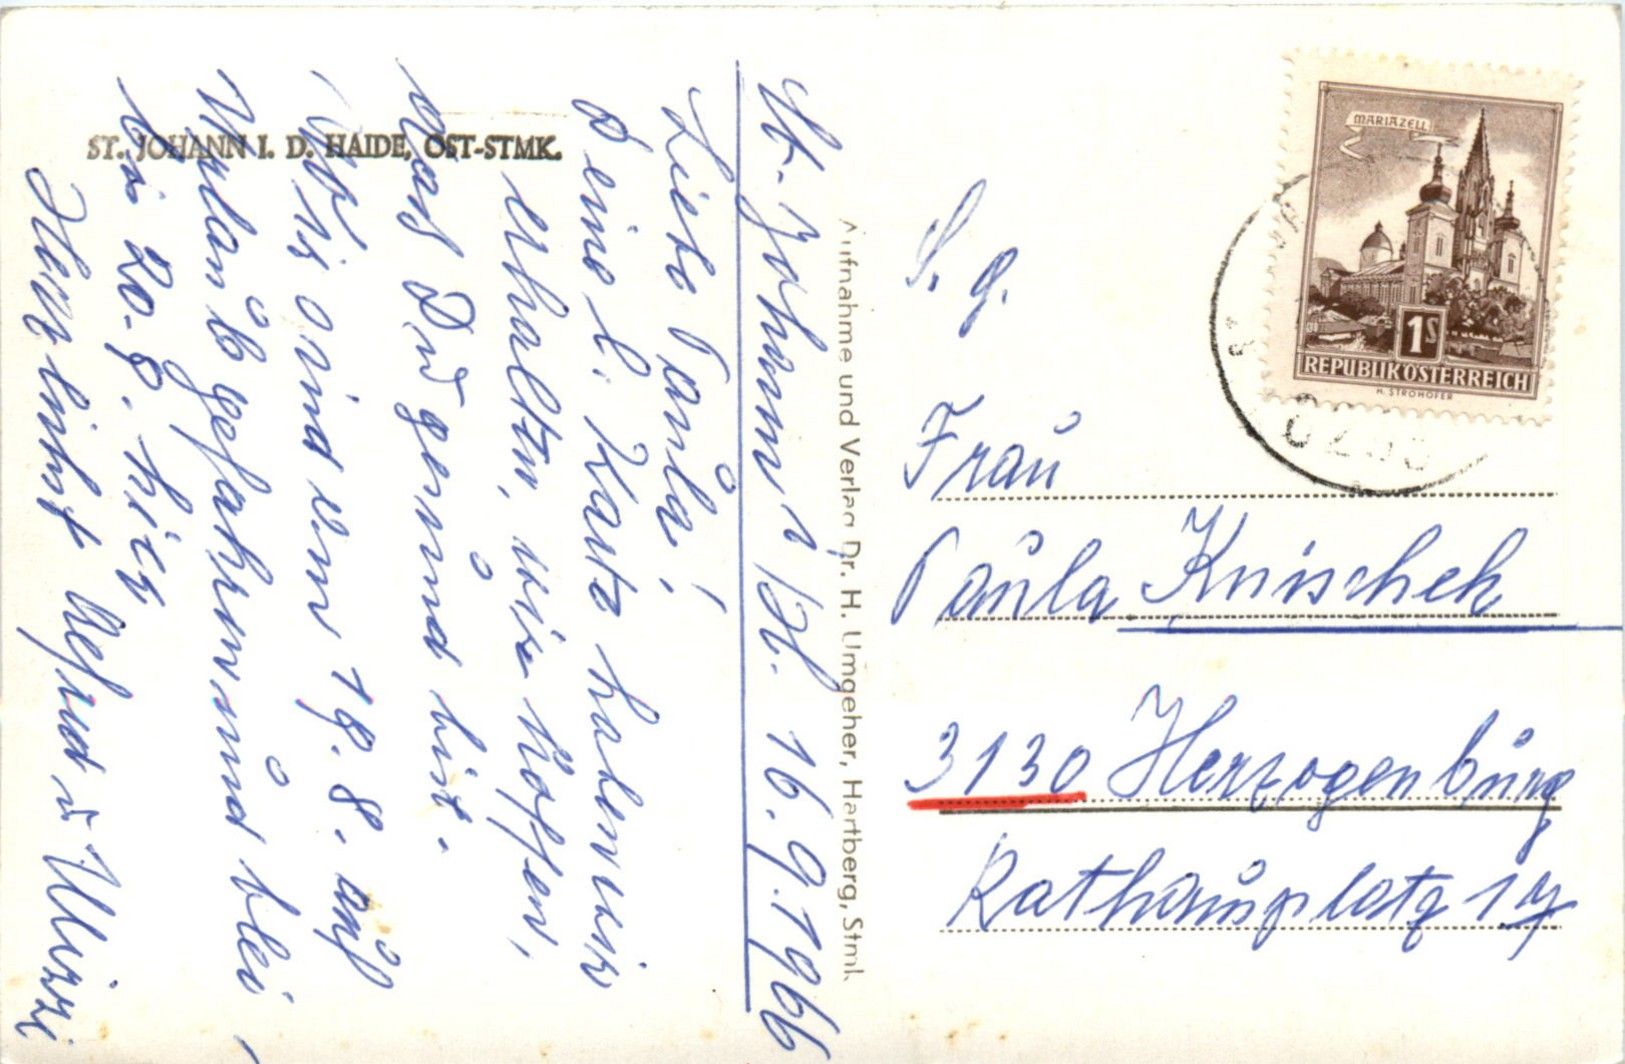 ST. JOHANN I. D. HAIDE, OST-STMK.
St. Johann 16.9.1966
Liebe Paula!
Deine l. Karte haben wir
erhalten, wir hoffen,
das Du gesund bist.
Wir sind vom 18. 8. auf
Urlaub gefahren und blei-
bis 20. 9. hier
Herzlichst u Mizzi
Aufnahme und Verlag Dr. H. Umgeher, Hartberg, Stmk
MARIAZELL
1S
REPUBLIK ÖSTERREICH
H. STROHOFER
S. g.
Frau
Paula Knischek
3130 Herzogenburg
Rathausplatz 17